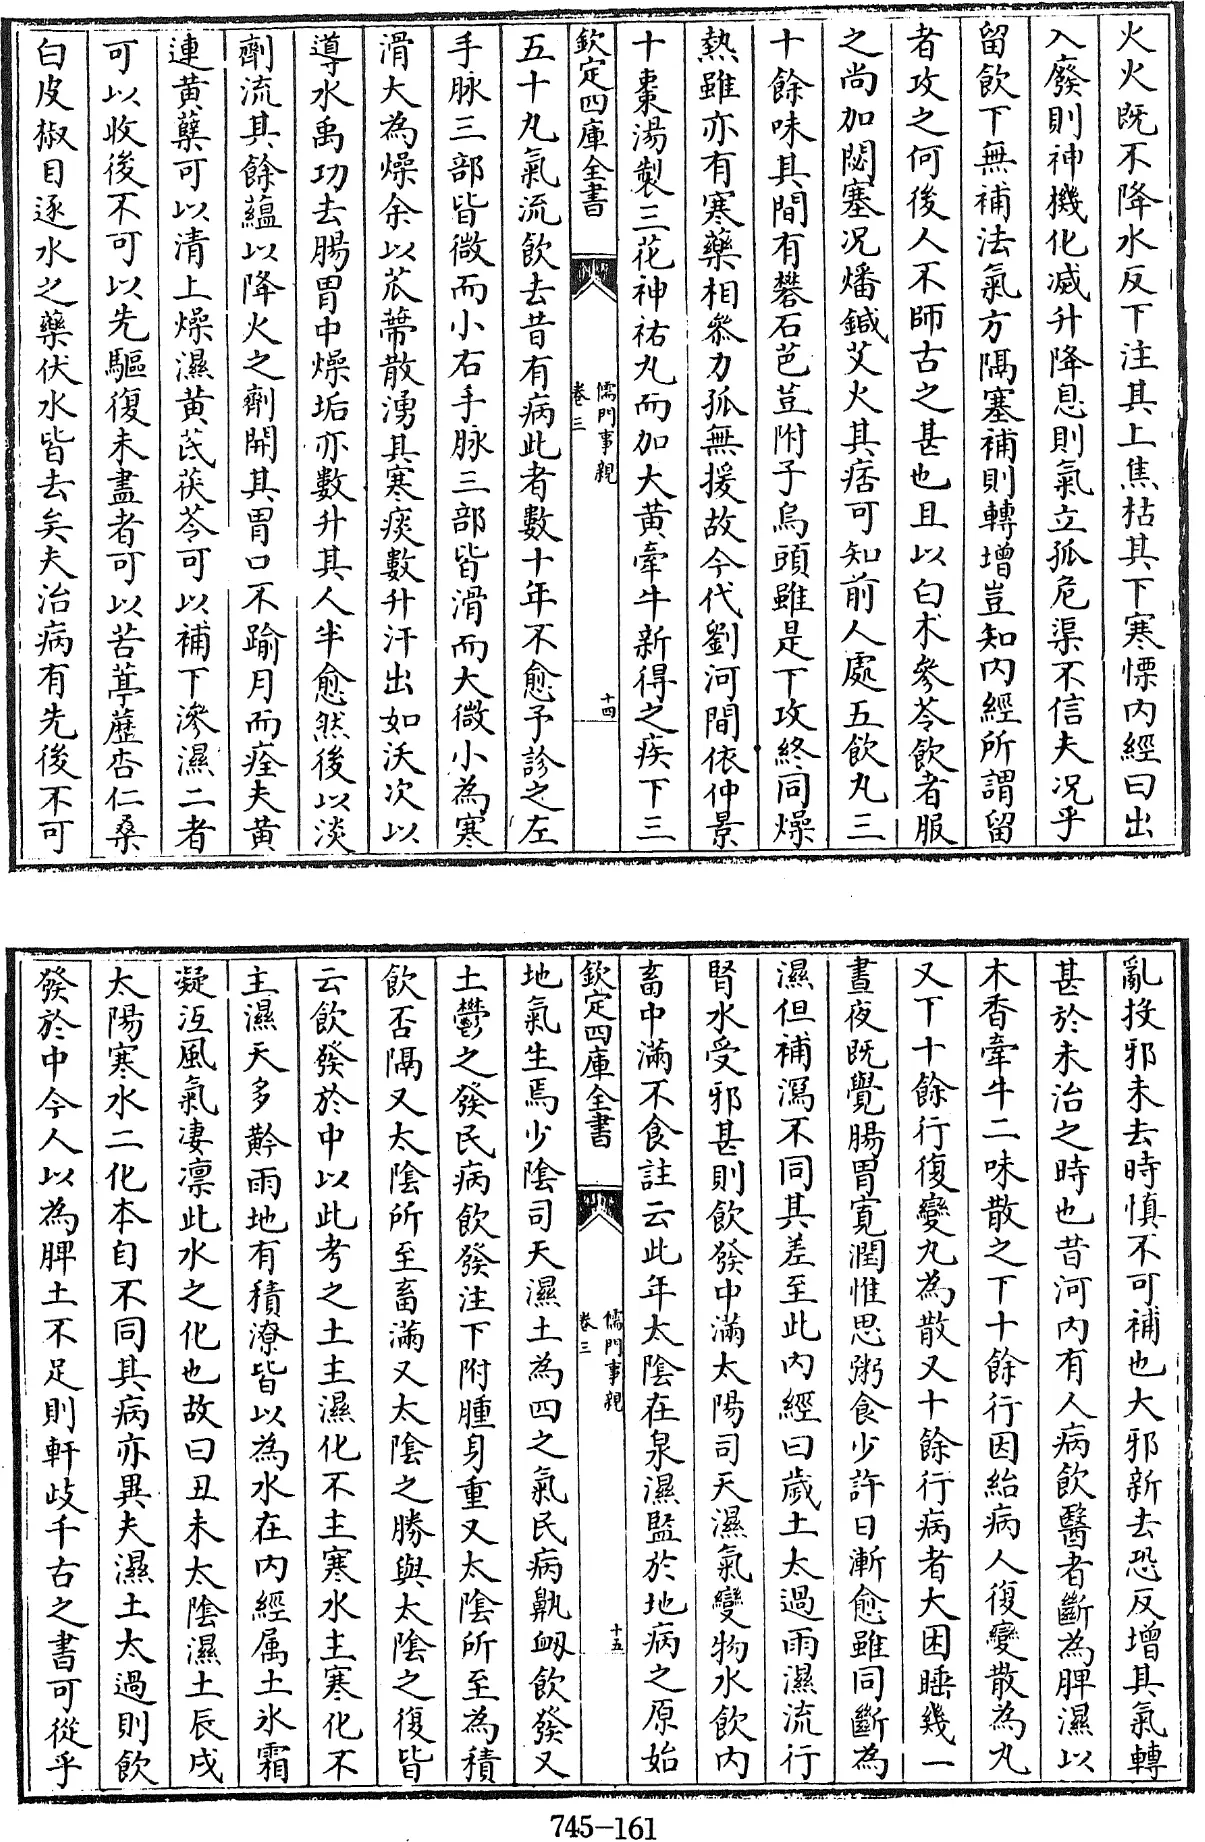 火火既不降水反下注其上焦枯其下寒慄内經曰出
入廢則神機化滅升降息則氣立孤危渠不信夫况乎
留飲下無補法氣方隔塞補則轉增豈知内經所謂留
者攻之何後人不師古之甚也且以白术參苓飲者服
之尚加閟塞况燔鍼艾火其痞可知前人處五飲丸三
十餘味其間有礬石芭豆附子烏頭雖是下攻終同燥
熱雖亦有寒藥相參力孤無援故今代劉河間依仲景
十棗湯製三花神祐丸而加大黄牽牛新得之疾下三
欽定四庫全書
儒門事親
卷三
十四
五十丸氣流飲去昔有病此者數十年不愈予診之左
手脉三部皆微而小右手脉三部皆滑而大微小為寒
滑大為燥余以苽蔕散湧其寒痰數升汗出如沃次以
導水禹功去腸胃中燥垢亦數升其人半愈然後以淡
劑流其餘蘊以降火之劑開其胃口不踰月而痊夫黄
連黄蘖可以清上燥濕黄芪茯苓可以補下滲濕二者
可以收後不可以先驅復未盡者可以苦葶藶杏仁桑
白皮椒目逐水之藥伏水皆去矣夫治病有先後不可
亂投邪未去時慎不可補也大邪新去恐反增其氣轉
甚於未治之時也昔河内有人病飲醫者斷為脾濕以
木香牽牛二味散之下十餘行因紿病人復變散為丸
又下十餘行復變丸為散又十餘行病者大困睡幾一
晝夜既覺腸胃寛潤惟思粥食少許日漸愈雖同斷為
濕但補瀉不同其差至此内經曰歲土太過雨濕流行
腎水受邪甚則飲發中滿太陽司天濕氣變物水飲内
畜中滿不食註云此年太陰在泉濕監於地病之原始
欽定四庫全書
儒門事親
卷三
十五
地氣生焉少陰司天濕土為四之氣民病鼽衂飲發又
土鬱之發民病飲發注下附腫身重又太陰所至為積
飲否隔又太陰所至畜滿又太陰之勝與太陰之復皆
云飲發於中以此考之土主濕化不主寒水主寒化不
主濕天多黅雨地有積潦皆以為水在内經属土氷霜
凝沍風氣凄凛此水之化也故曰丑未太陰濕土辰戌
太陽寒水二化本自不同其病亦異夫濕土太過則飲
發於中今人以為脾土不足則軒岐千古之書可從乎
745-161